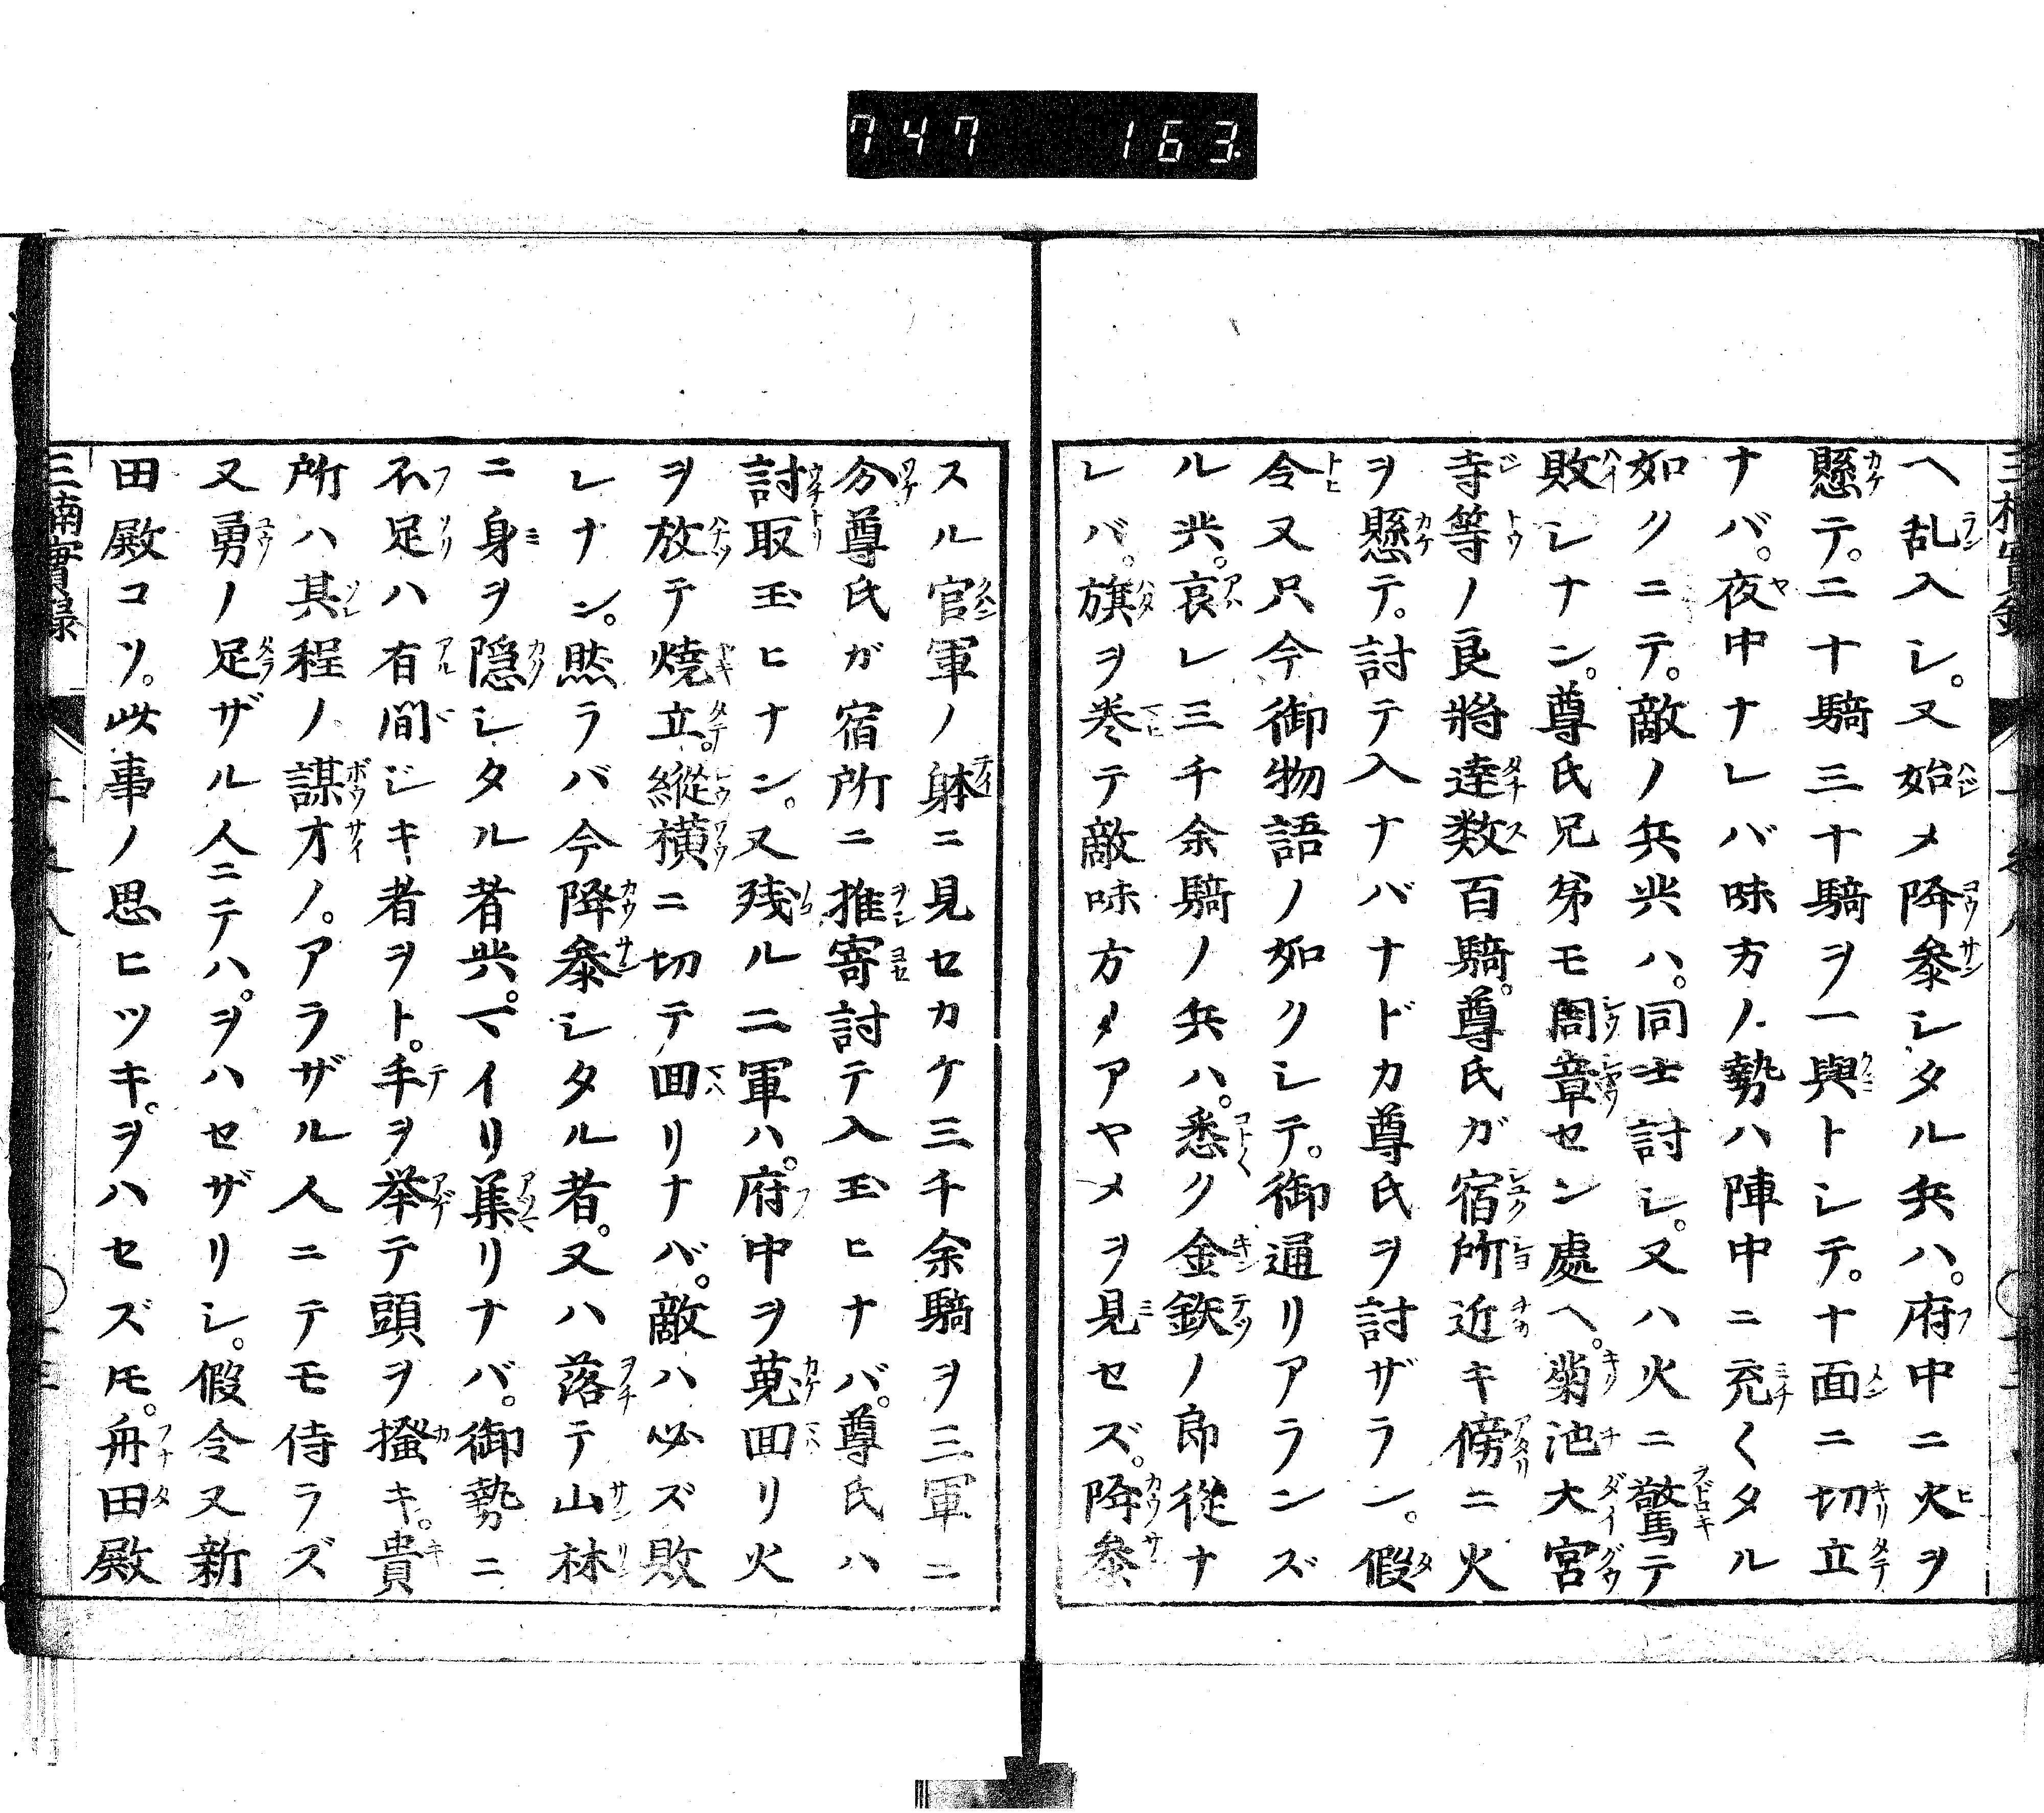 747 163
ヘ乱入シ。又始メ降參シタル兵ハ。府中ニ火ヲ
懸テ。二十騎三十騎ヲ一與トシテ。十面ニ切立
ナバ。夜中ナレバ味方ノ勢ハ陣中ニ充〱タル
如クニテ。敵ノ兵共ハ。同士討シ。又ハ火ニ驚テ
敗シナン。尊氏兄弟モ周章セン處ヘ。菊池大宮
寺等ノ良將達数百騎。尊氏ガ宿所近キ傍ニ火
ヲ懸テ。討テ入ナバナドカ尊氏ヲ討ザラン。假
令又只今御物語ノ如クシテ。御通リアランズ
ル共。哀レ三千余騎ノ兵ハ。悉ク金鉄ノ郎從ナ
レバ。旗ヲ巻テ敵味方メアヤメヲ見セズ。降參
スル官軍ノ躰ニ見セカケ三千余騎ヲ三軍ニ
分尊氏ガ宿所ニ推寄討テ入玉ヒナバ。尊氏ハ
討取玉ヒナン。又残ル二軍ハ。府中ヲ蒐回リ火
ヲ放テ燒立。縱横ニ切テ回リナバ。敵ハ必ズ敗
レナン。然ラバ今降參シタル者。又ハ落テ山林
ニ身ヲ隠シタル者共。マイリ集リナバ。御勢ニ
不足ハ有間ジキ者ヲト。手ヲ挙テ頭ヲ搔キ。貴
所ハ其程ノ謀才ノ。アラザル人ニテモ侍ラズ
又勇ノ足ザル人ニテハ。ヲハセザリシ。假令又新
田殿コソ。此事ノ思ヒツキ。ヲハセズ𪜈。舟田殿
三楠實録